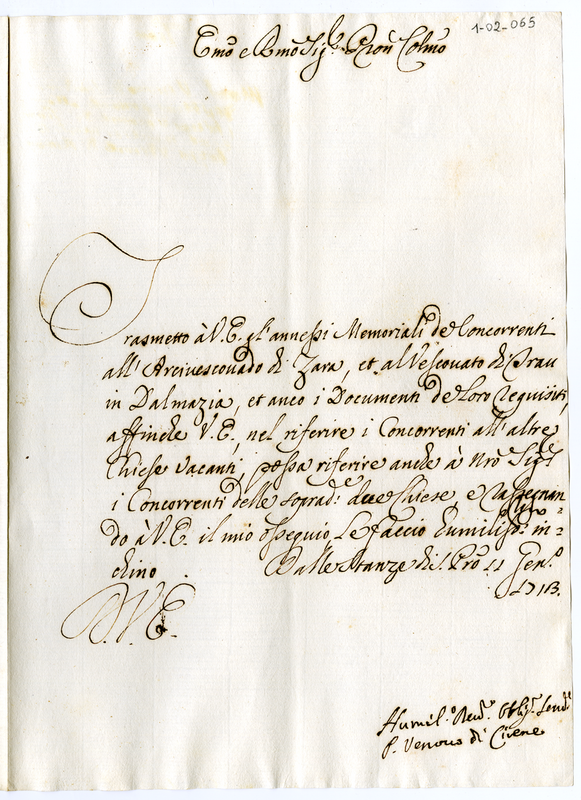 1-02-065
Emo e Rmo Sig.r Pron Colmo
Trasmetto à V.E. gl'annessi Memoriali de Concorrenti
all'Arcivescovado di Zara, et al Vescovato di Trau
in Dalmazia, et anco i Documenti de loro requisiti,
affinche V.E., nel riferire i Concorrenti all'altre
Chiese vacanti, possa riferire anche à Nro Sig.re
i Concorrenti delle soprad.e due Chiese e rassegnan=
do à V.E. il mio ossequio, Le faccio humiliss.mo in=
chino. Dalle Stanze del 11 Gen.o
1713.
D. V. E.
Humil.o Dev.o Obblig. Serv.e
Vescovo di Cirene